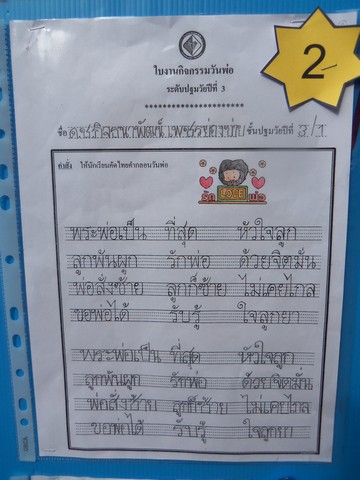 2
ใบงานกิจกรรมวันพ่อ
ระดับปฐมวัยปีที่ 3
ชื่อ ด.ช. ชั้นปฐมวัยปีที่ 3/1
คำสั่ง ให้นักเรียนคัดไทยคำกลอนวันพ่อ
รัก LOVE พ่อ
พระพ่อเป็น ที่สุด หัวใจลูก
ลูกพันผูก รักพ่อ ด้วยจิตมั่น
พ่อสั่งซ้าย ลูกก็ซ้าย ไม่เคยไกล
ขอพ่อได้ รับรู้ ใจลูกยา
พระพ่อเป็น ที่สุด หัวใจลูก
ลูกพันผูก รักพ่อ ด้วยจิตมั่น
พ่อสั่งซ้าย ลูกก็ซ้าย ไม่เคยไกล
ขอพ่อได้ รับรู้